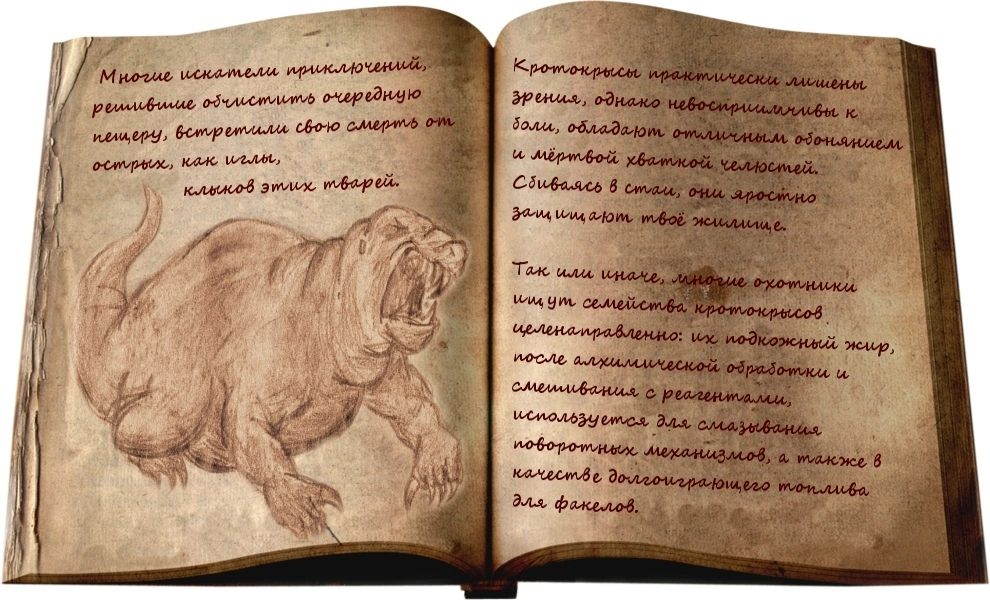 Многие искатели приключений,
решившие обчистить очередную
пещеру, встретили свою смерть от
острых, как иглы,
клыков этих тварей.
Кротокрысы практически лишены
зрения, однако невосприимчивы к
боли, обладают отличным обонянием
и мёртвой хваткой челюстей.
Сбиваясь в стаи, они яростно
защищают твоё жилище.
Так или иначе, многие охотники
ищут семейства кротокрысов
целенаправленно: их подкожный жир,
после алхимической обработки и
смешивания с реагентами,
используется для смазывания
поворотных механизмов, а также в
качестве долгоиграющего топлива
для факелов.